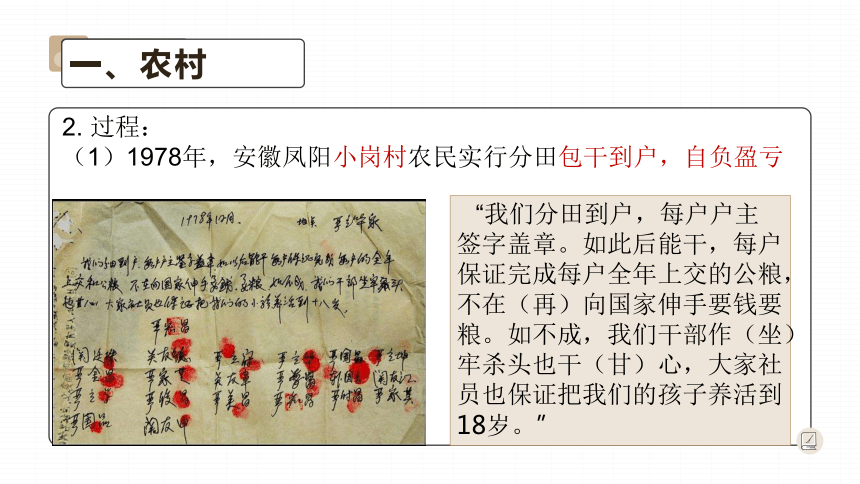 一、农村
2. 过程：
（1）1978年，安徽凤阳小岗村农民实行分田包干到户，自负盈亏
1978年12月. 地点 严立华家
我们分田到户 每户户主签字盖章 如以后能干 每户保证完成每户的全年
上交和公粮 不在向国家伸手要钱要粮 如不成 我们干部坐牢杀头
也甘心 大家社员也保证把我们的小孩养活到十八岁.
“我们分田到户，每户户主
签字盖章。如此后能干，每户
保证完成每户全年上交的公粮，
不在（再）向国家伸手要钱要
粮。如不成，我们干部作（坐）
牢杀头也干（甘）心，大家社
员也保证把我们的孩子养活到
18岁。”